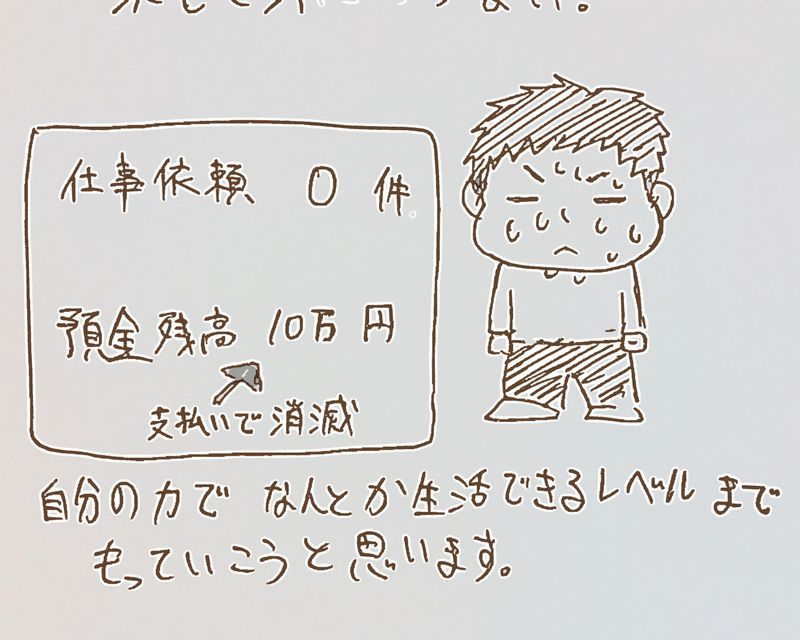 仕事依頼 0 件。
預金残高 10万円
支払いで消滅
自分の力で なんとか生活できるレベルまで
もっていこうと思います。